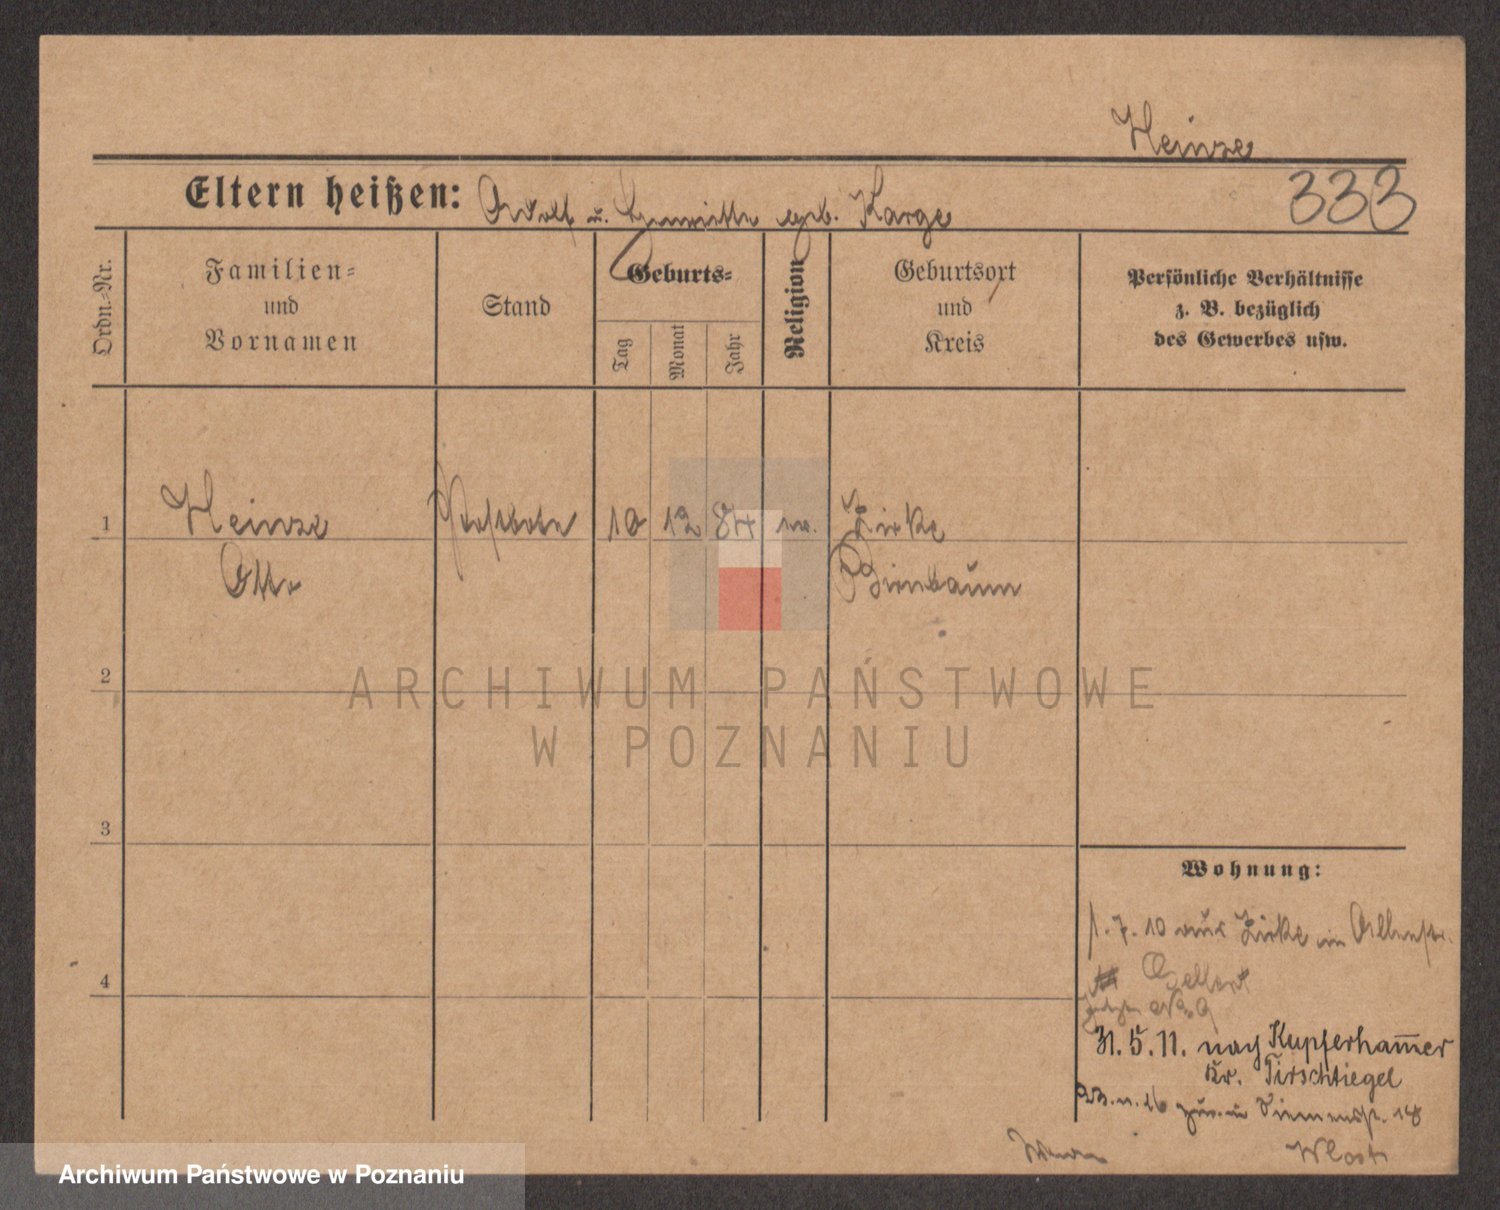 Heinze
Eltern heißen: Adolf u. Henriette geb. Karge
333
Ordn.-Nr.
Familien-
und
Vornamen
Stand
Geburts-
Tag
Monat
Jahr
Religion
Geburtsort
und
Kreis
Persönliche Verhältnisse
z. B. bezüglich
des Gewerbes usw.
1 Heinze Postbote 10 12 84 ev. Zirke
Otto Birnbaum
2
3
4
Wohnung:
1.7.10 aus Zirke in
Gellert
No 9
31.5.11. nach Kupferhammer
Kr. Tirschtiegel
ARCHIWUM PAŃSTWOWE
W POZNANIU
Archiwum Państwowe w Poznaniu